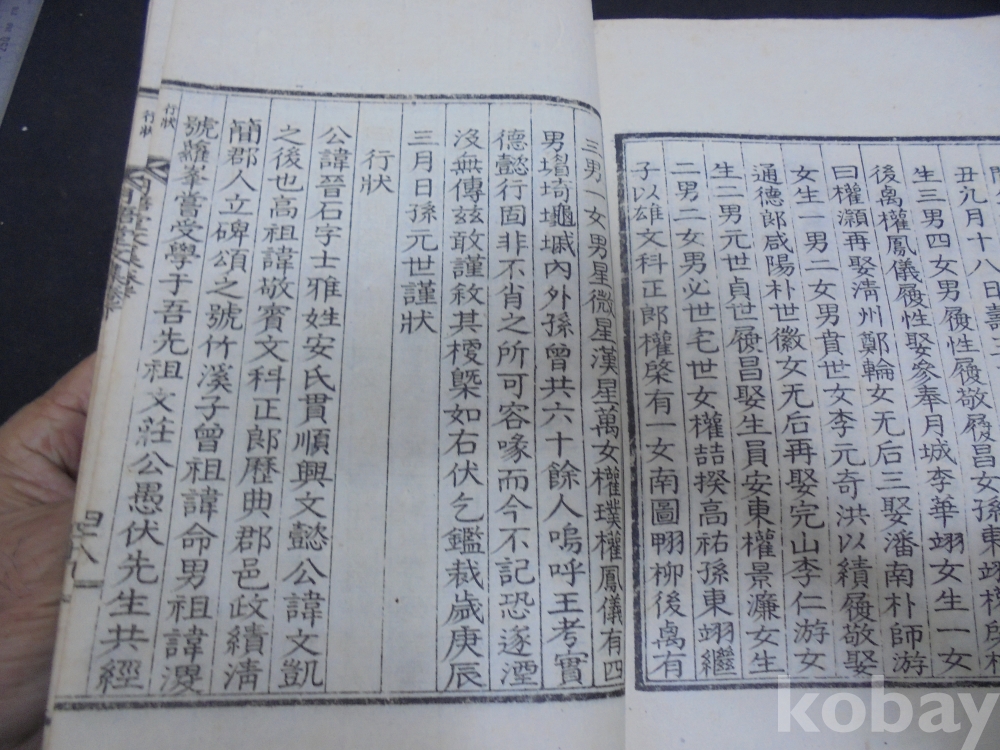 丑九月十八日壽三
生三男四女男履性履敬履昌女孫東翊
後禼權鳳儀履性娶參奉月城李華翊女生一女
曰權灝再娶淸州鄭輪女无后三娶潘南朴師游
女生一男二女男貟世女李元奇洪以績履敬娶
通德郎咸陽朴世徽女无后再娶完山李仁游女
生二男元世貞世履昌娶生員安東權景濂女生
二男二女男必世宅世女權喆揆高祐孫東翊繼
子以雄文科正郎權棨有一女南圖翙柳後禼有
三男一女男星微星漢星萬女權璞權鳳儀有四
男壻㙨龜墄內外孫曾共六十餘人嗚呼王考實
德懿行固非不肖之所可容喙而今不記恐遂湮
沒無傳茲敢謹敘其梗槩如右伏乞鑑裁歲庚辰
三月日孫元世謹狀
行狀
公諱晉石字士雅姓安氏貫順興文懿公諱文凱
之後也高祖諱敬賓文科正郎歷典郡邑政績淸
簡郡人立碑頌之號竹溪子曾祖諱命男祖諱澷
號蘿峯嘗受學于吾先祖文莊公愚伏先生共經
行狀
行狀
四十八
kobay